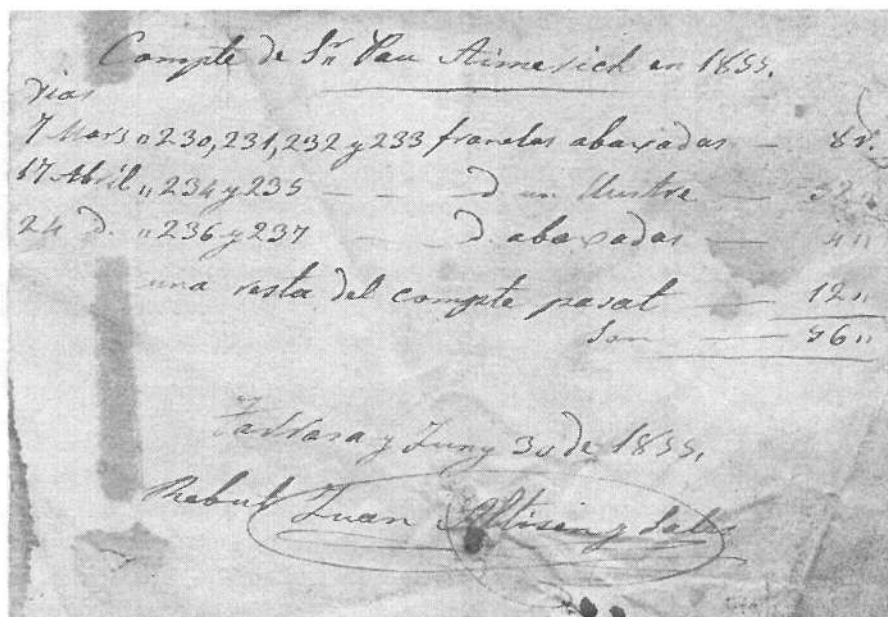 Compte de Sr. Pau Aimerich en 1855.
Dias
7 Mars " 230, 231, 232 y 233 franelas abaxadas — 8 r.
17 Abril " 234 y 235 — — D en llustre — 32 "
24 D. " 236 y 237 — D. abaxadas — 4 "
una resta del compte pasat — 12 "
Son — 56 "
Tarrasa y Juny 30 de 1855.
Rebut Juan Altisen y Sala